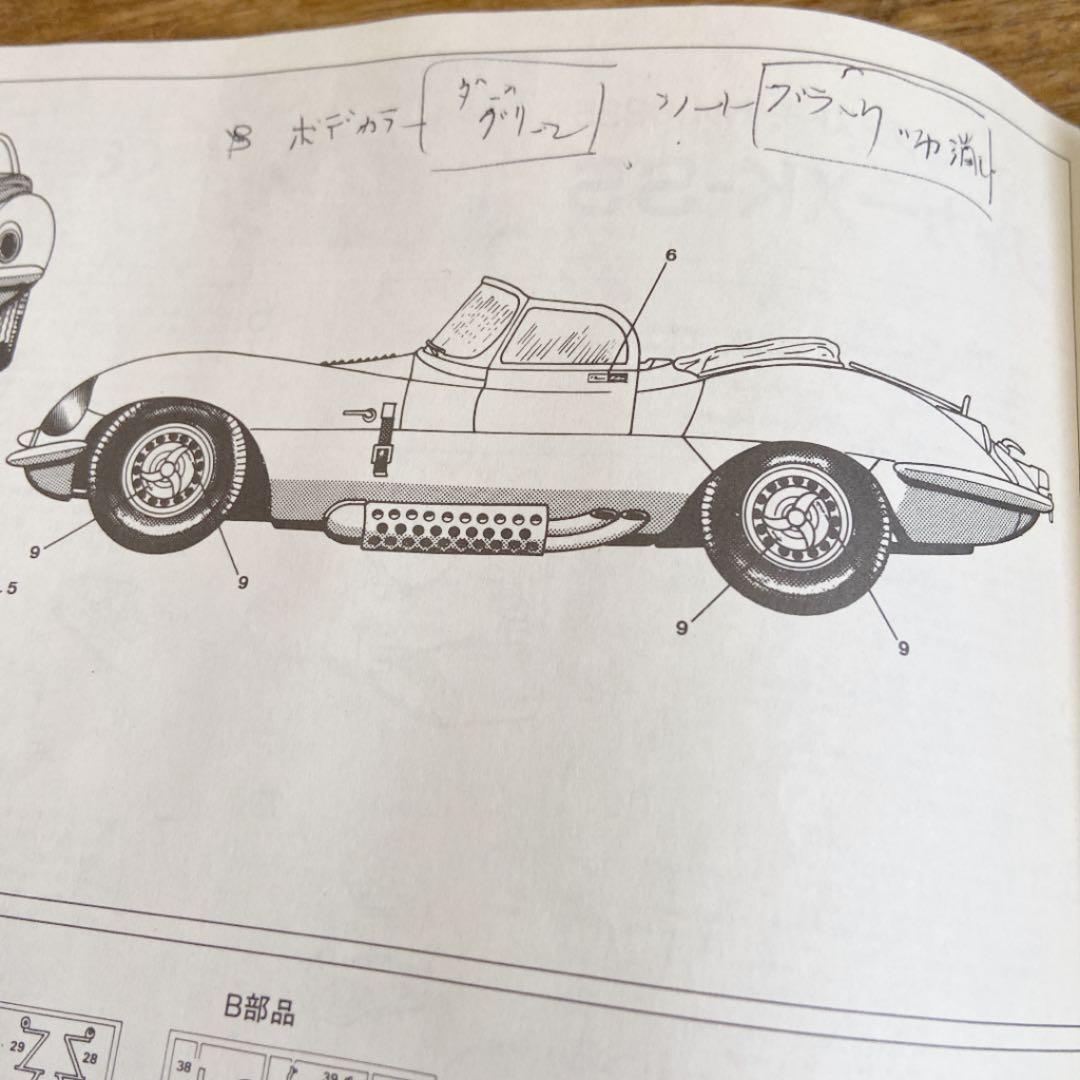 B ボデカラー ダーク グリーン シート ブラック ツヤ消し
6
9
9
9
9
5
B部品
29
28
38
39